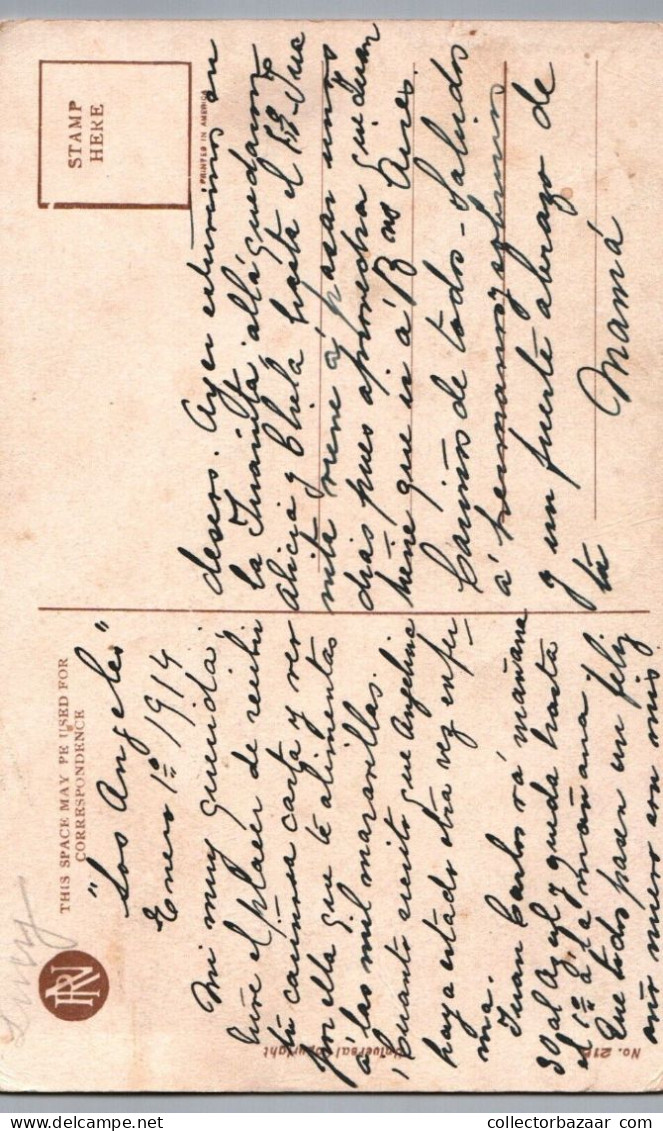 THIS SPACE MAY BE USED FOR
CORRESPONDENCE
"Los Angeles"
Enero 1º 1914
Mi muy querida:
tuve el placer de recibir
tu cariñosa carta y ver
por ella que te alimentas
á las mil maravillas.
Cuanto siento que Angelina
haya estado otra vez enfer-
ma.
Juan Carlos vá mañana
30 al Azul y queda hasta
el 1º á la mañana.
Que todos pasen un feliz
año nuevo son mis
deseos. Ayer estuvimos en
la Juanita, allá quedaron
Alicia y Chela hasta el
mita viene á pasar unos
dias pues aprovecha que Juan
tiene que ir á Bnos Aires.
Cariños de todos - Saludos
á hermanas y
y un fuerte abrazo de
tu
Mamá
STAMP
HERE
PRINTED IN AMERICA
Universal Copyright
No. 21
PN
collectorbazaar.com